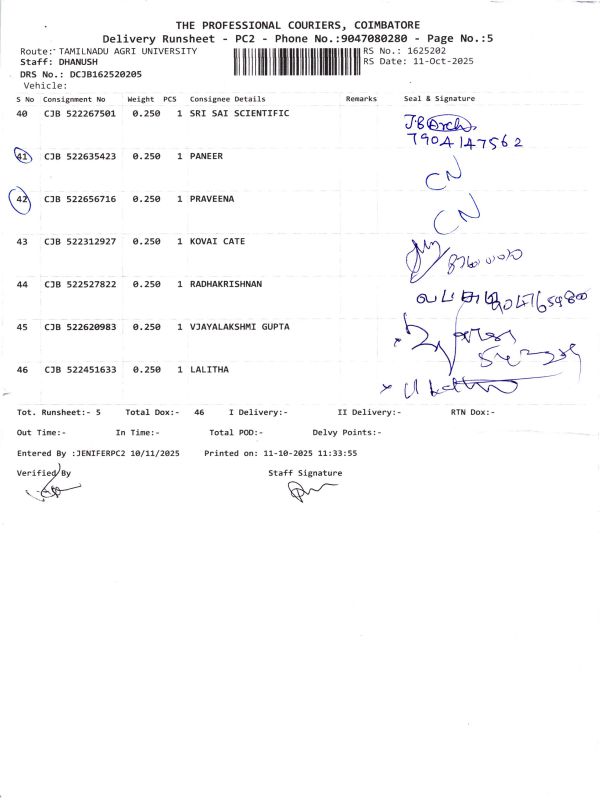 THE PROFESSIONAL COURIERS, COIMBATORE
Delivery Runsheet - PC2 - Phone No.:9047080280 - Page No.:5
Route: TAMILNADU AGRI UNIVERSITY RS No.: 1625202
Staff: DHANUSH RS Date: 11-Oct-2025
DRS No.: DCJB162520205
Vehicle:
S No Consignment No Weight PCS Consignee Details Remarks Seal & Signature
40 CJB 522267501 0.250 1 SRI SAI SCIENTIFIC
7904147562
41 CJB 522635423 0.250 1 PANEER CN
42 CJB 522656716 0.250 1 PRAVEENA CN
43 CJB 522312927 0.250 1 KOVAI CATE
44 CJB 522527822 0.250 1 RADHAKRISHNAN
45 CJB 522620983 0.250 1 VJAYALAKSHMI GUPTA
46 CJB 522451633 0.250 1 LALITHA
Tot. Runsheet:- 5 Total Dox:- 46 I Delivery:- II Delivery:- RTN Dox:-
Out Time:- In Time:- Total POD:- Delvy Points:-
Entered By :JENIFERPC2 10/11/2025 Printed on: 11-10-2025 11:33:55
Verified By Staff Signature